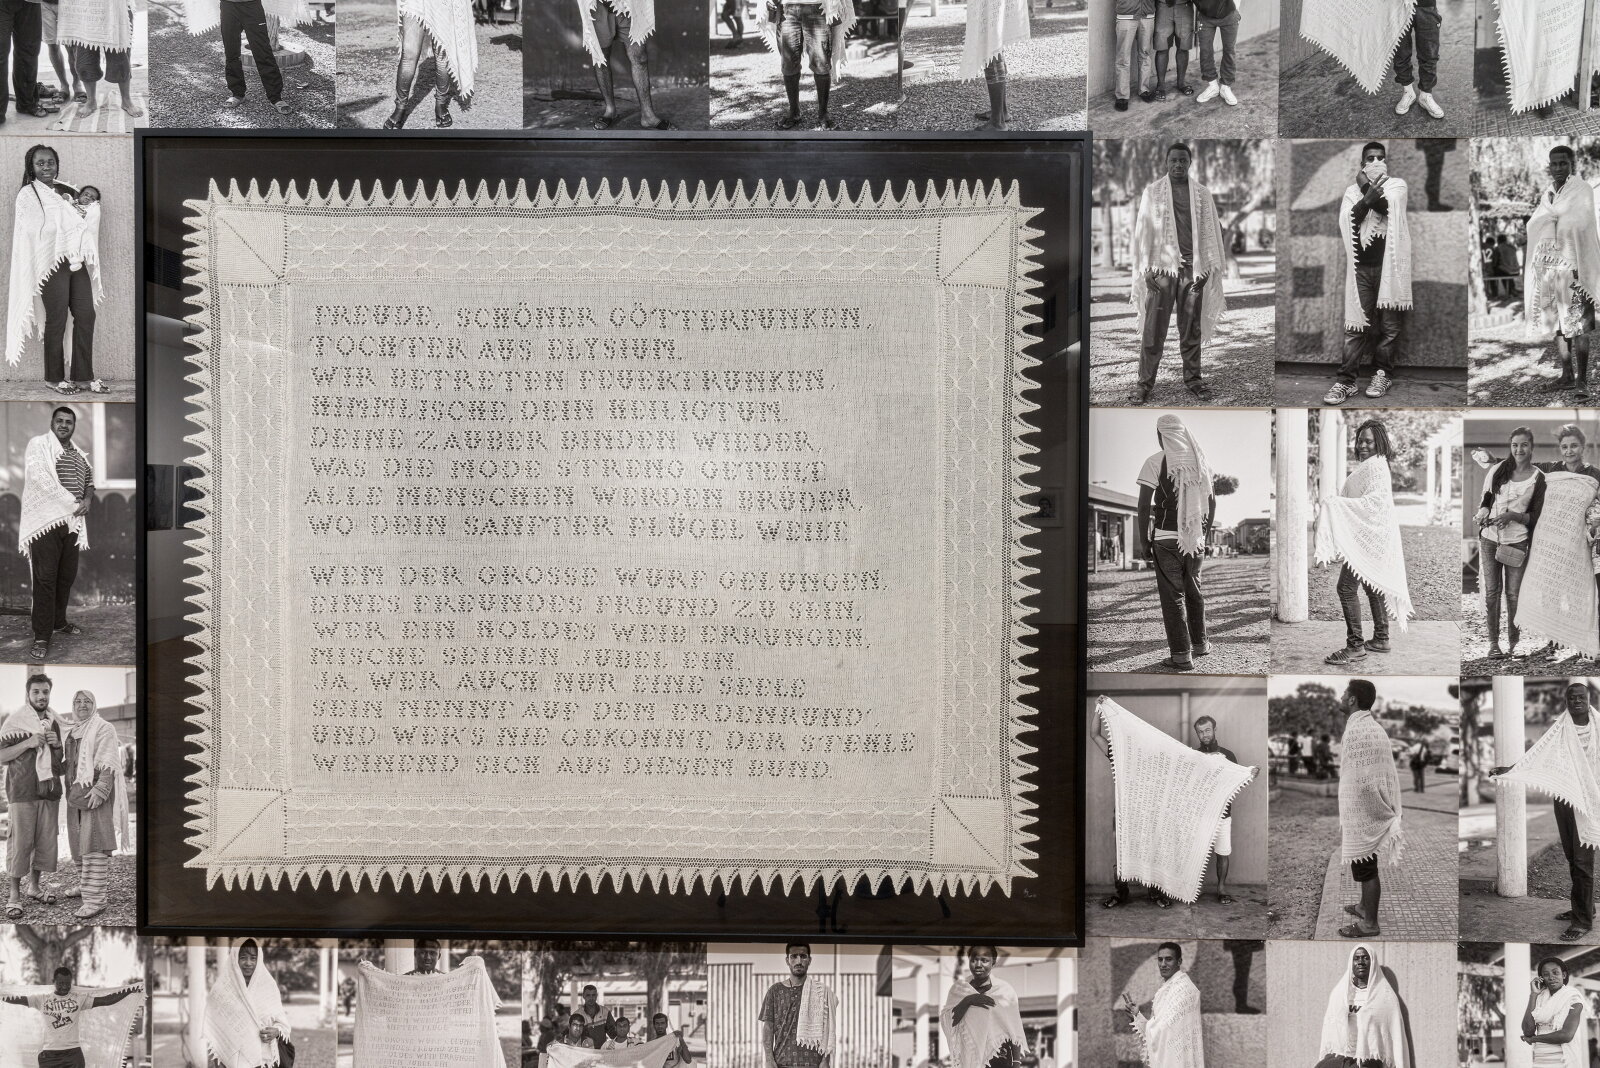 FREUDE, SCHÖNER GÖTTERFUNKEN,
TOCHTER AUS ELYSIUM,
WIR BETRETEN FEUERTRUNKEN,
HIMMLISCHE, DEIN HEILIGTUM.
DEINE ZAUBER BINDEN WIEDER,
WAS DIE MODE STRENG GETEILT
ALLE MENSCHEN WERDEN BRÜDER,
WO DEIN SANFTER FLÜGEL WEILT
WEM DER GROSSE WURF GELUNGEN,
EINES FREUNDES FREUND ZU SEIN,
WER EIN HOLDES WEIB ERRUNGEN,
MISCHE SEINEN JUBEL EIN.
JA, WER AUCH NUR EINE SEELE
SEIN NENNT AUF DEM ERDENRUND,
UND WER'S NIE GEKONNT, DER STEHLE
WEINEND SICH AUS DIESEM BUND.